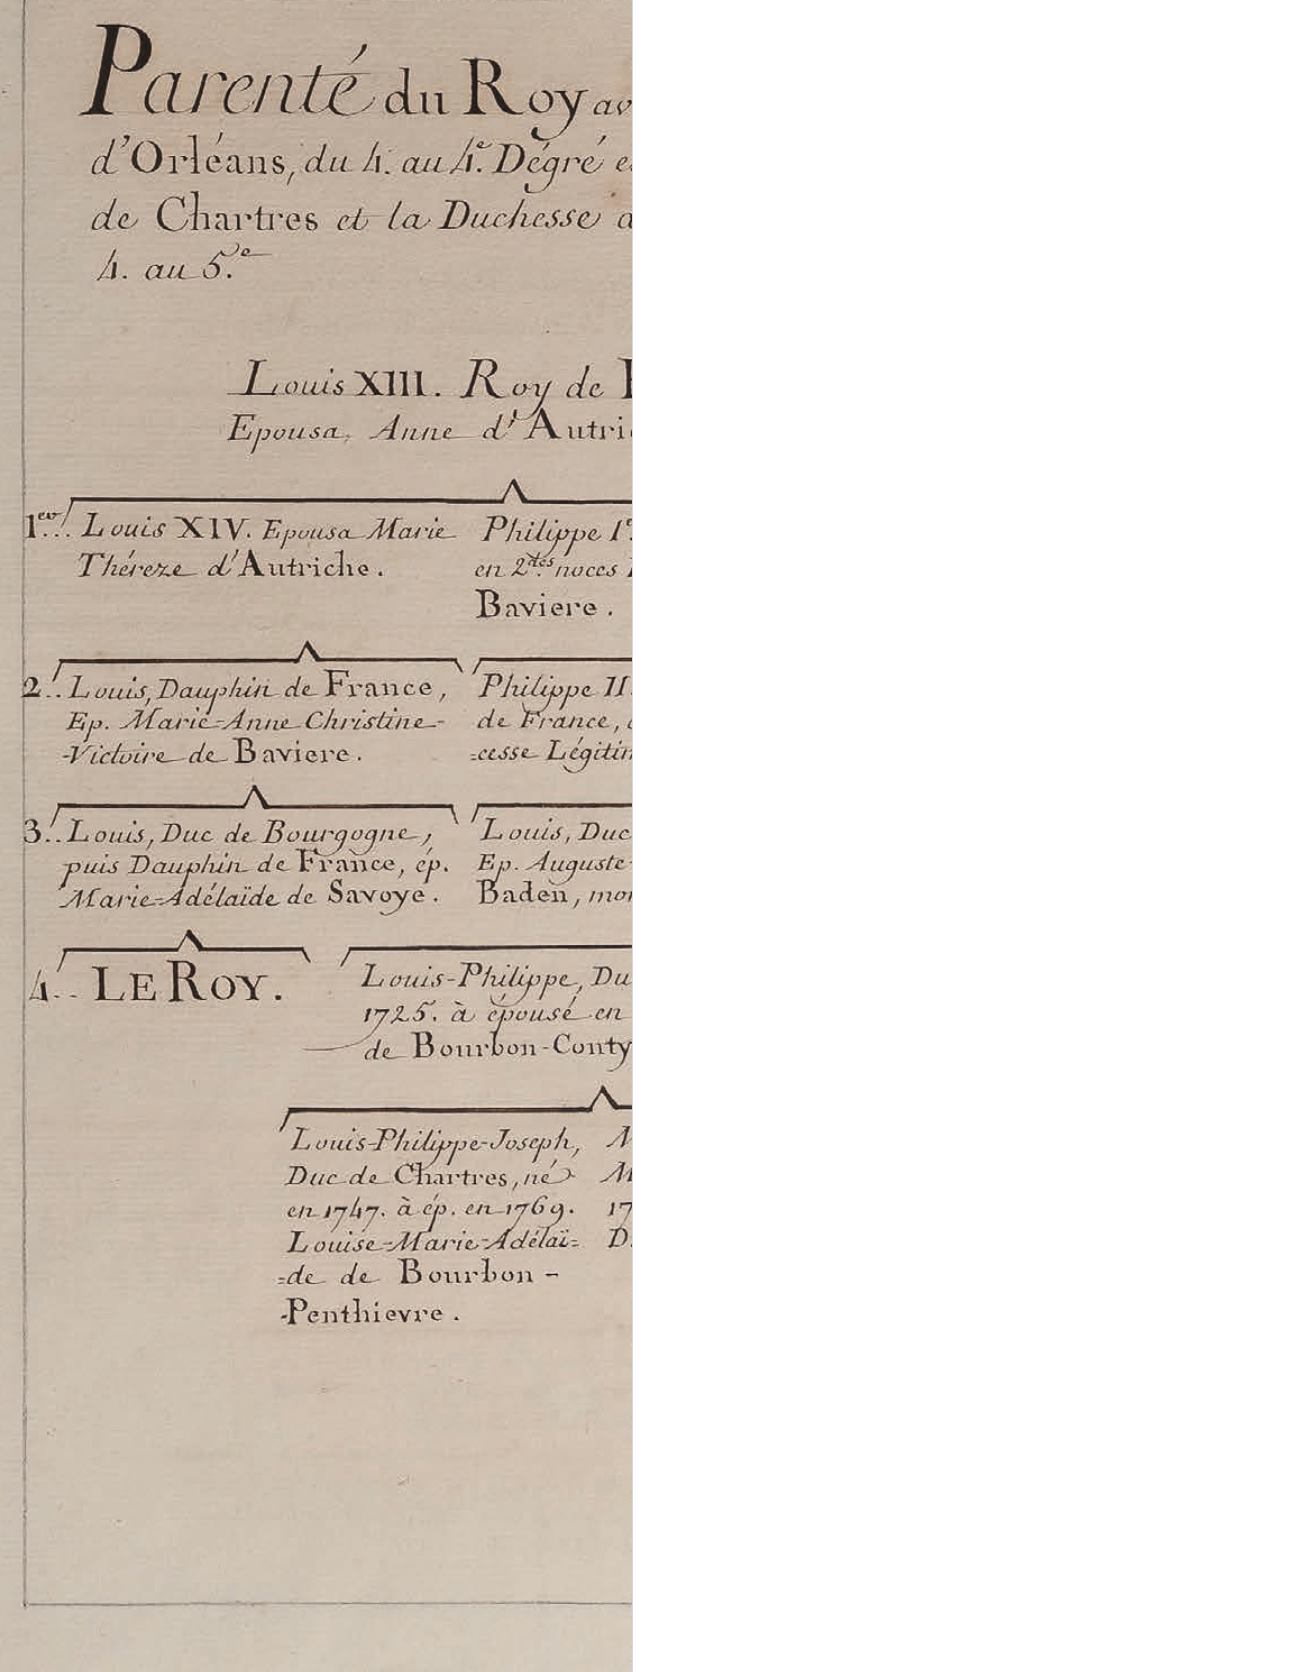 Parenté du Roy av
d'Orléans, du 4. au 4.e Dégré e
de Chartres et la Duchesse
4. au 5.e
Louis XIII. Roy de
Epousa, Anne d'Autri
1.er Louis XIV. Epousa Marie
Théreze d'Autriche.
Philippe I
en 2.des noces
Baviere.
2.. Louis, Dauphin de France,
Ep. Marie-Anne Christine-
-Victoire de Baviere.
Philippe II
de France,
=cesse Légitim
3.. Louis, Duc de Bourgogne,
puis Dauphin de France, ép.
Marie-Adélaïde de Savoye.
Louis, Duc
Ep. Auguste
Baden, mor
4.. LE ROY.
Louis-Philippe, Du
1725. à épousé en
de Bourbon-Conty
Louis-Philippe-Joseph,
Duc de Chartres, né
en 1747. à ép. en 1769.
Louise-Marie-Adélaï=
=de de Bourbon-
-Penthievre.
M
M
17
D.